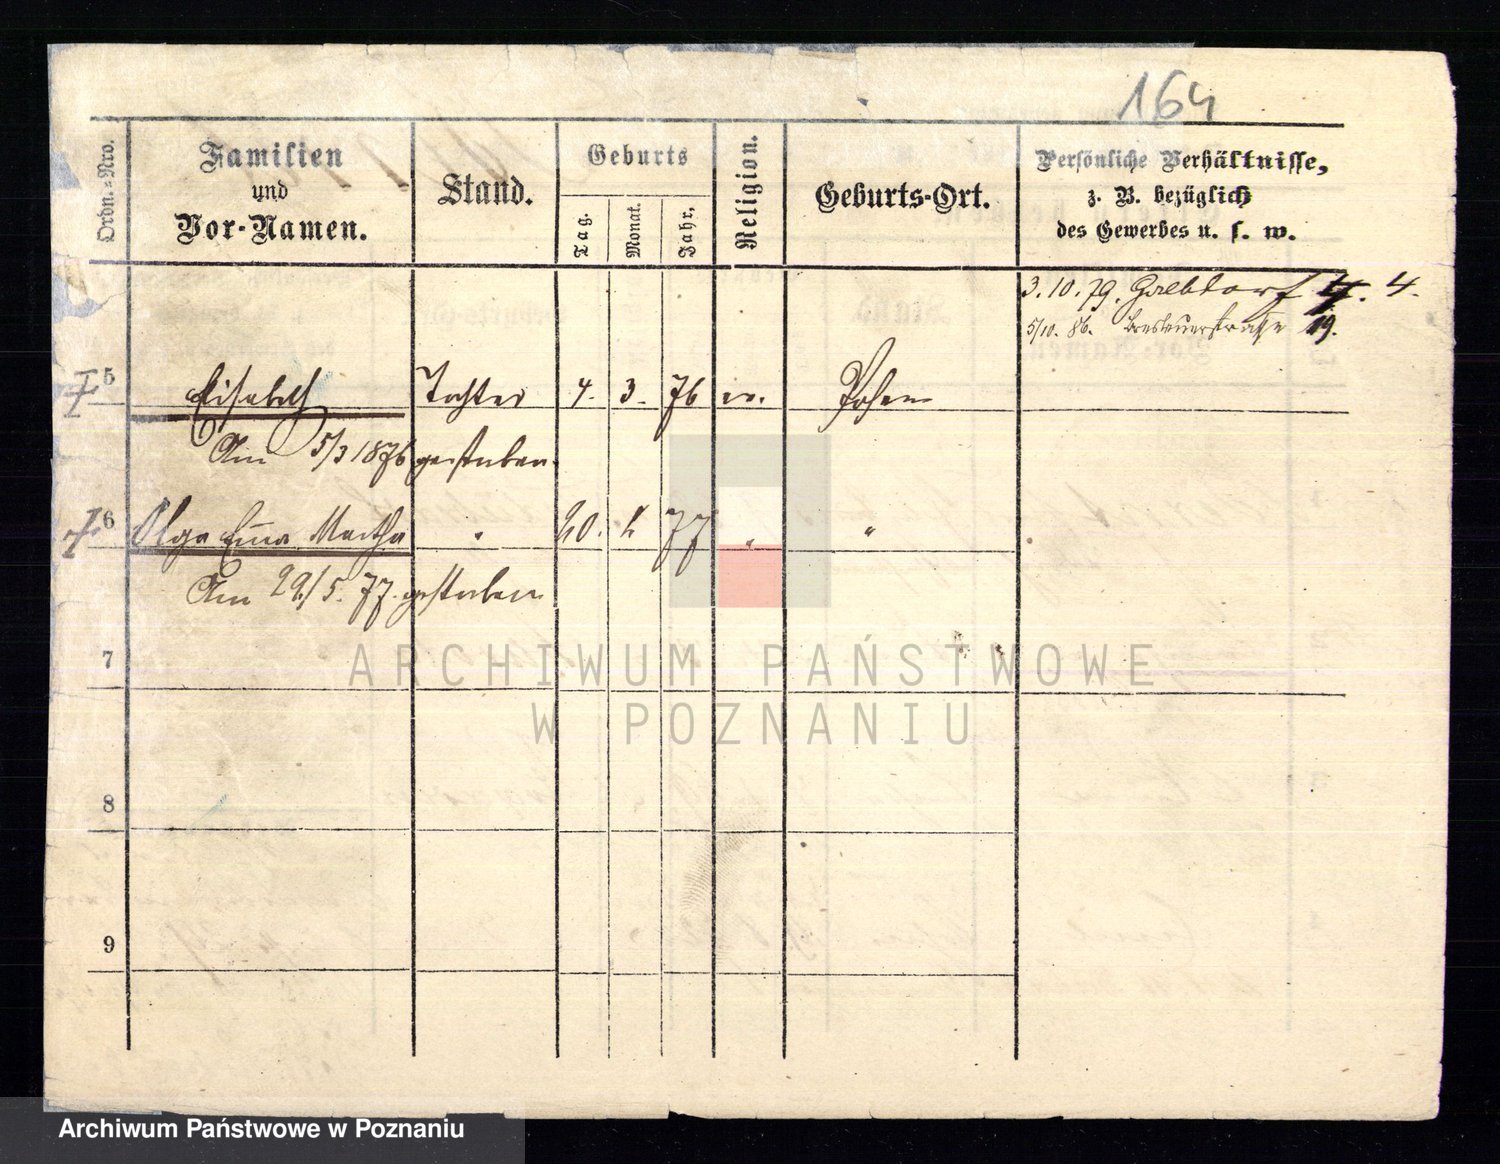 164
Ordn.=Nro.
Familien
und
Vor-Namen.
Stand.
Geburts
Tag.
Monat.
Jahr.
Religion.
Geburts-Ort.
Persönliche Verhältnisse,
z. B. bezüglich
des Gewerbes u. s. w.
3. 10. 79. 4. 4.
5/10. 86. 19.
5 Elisabeth Tochter 4. 3. 76 ev. Posen
Am 5/3 1876 gestorben.
6 Olga Emma Martha " 20. 77 " "
Am 29./5. 77. gestorben
7
8
9
ARCHIWUM PAŃSTWOWE
W POZNANIU
Archiwum Państwowe w Poznaniu